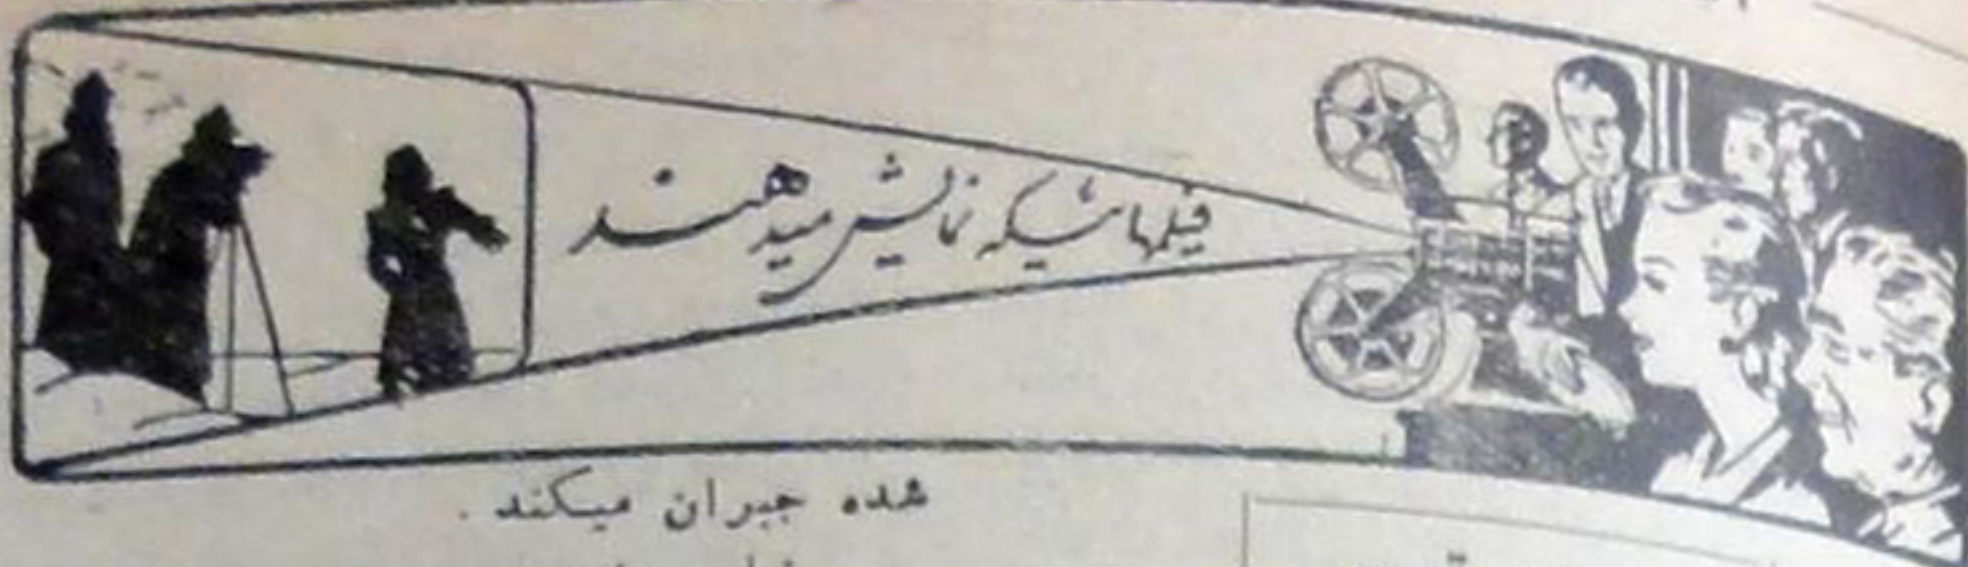 فیلمهائیکه نمایش میدهند
شده جبران میکند .